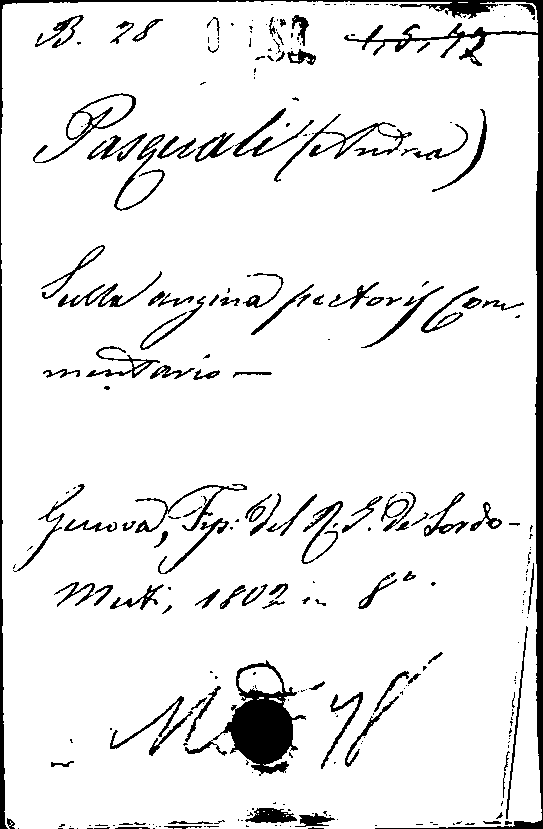 B. 28 1,5,42
Pasquali (Andrea)
Sulla angina pectoris Com-
mentario —
Genova, Tip. del R. I. de Sordo-
Muti, 1802 in 8°.
78